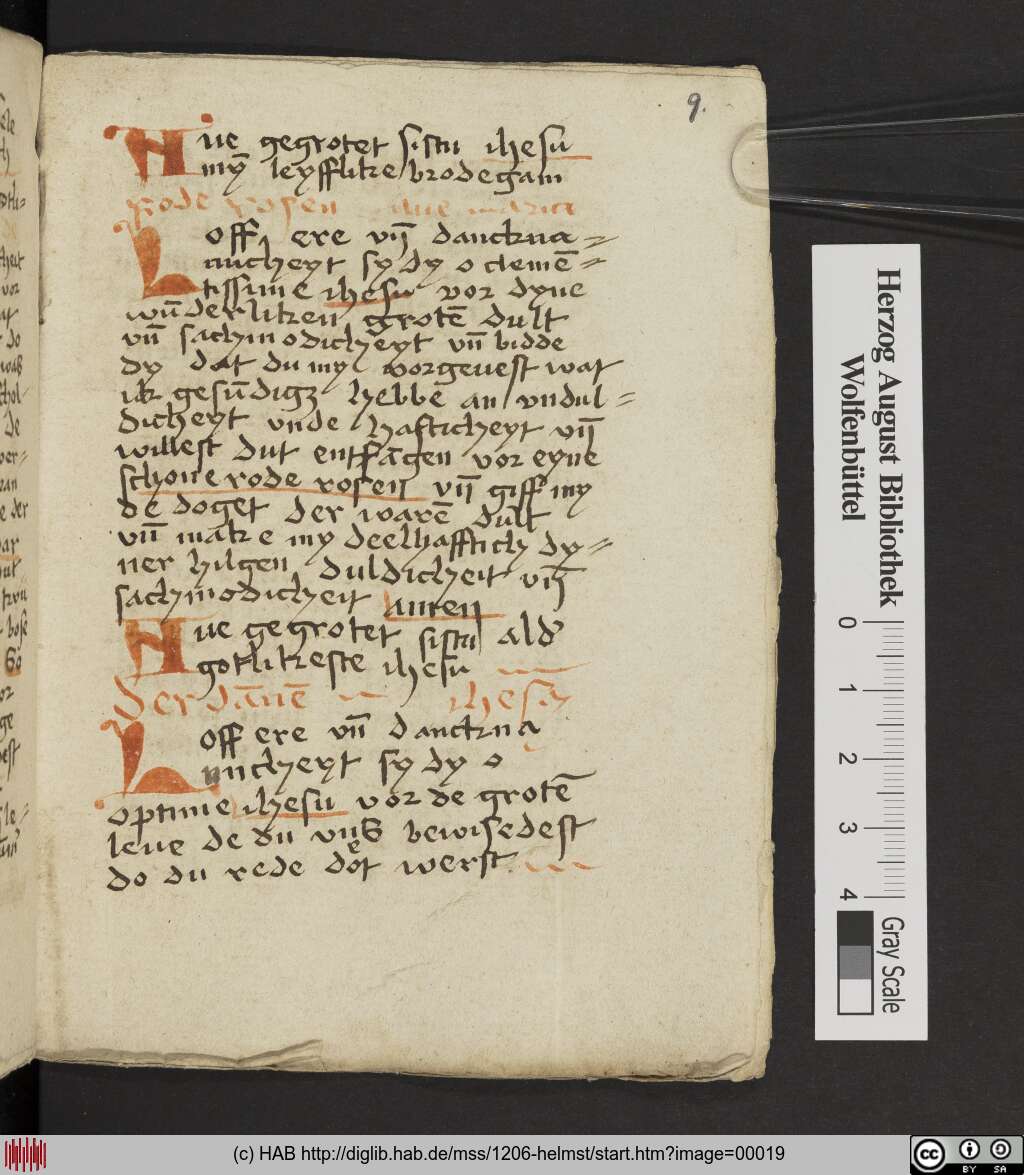 9.
Nue gegrotet sistu ihesu
mȳ leyfflikre brodegam
rode rosen
Loff ere vn̄ danckna=
micheyt sy dy o clemē=
tissime ihesu vor dyne
wūderliken grotē dult
vn̄ sachmodicheyt vn̄ bidde
dy dat du my vorgeuest wat
ik gesūdigz hebbe an vndul=
dicheyt vnde hasticheyt vn̄
willest dut entfāgen vor eyne
schone rode rosen vn̄ giff my
de doget der warē dult
vn̄ make my deelhafftich dy=
ner hilgen duldicheit vn̄
sachmodicheit amen
Nue gegrotet sistu alď
gotlikeste ihesu
der dānē ihesu
Loff ere vn̄ danckna
mcheyt sy dy o
optime ihesu vor de grotē
leue de du vnß bewisedest
do du rede doͤt werst
Herzog August Bibliothek
Wolfenbüttel
0 1 2 3 4
Gray Scale
(c) HAB http://diglib.hab.de/mss/1206-helmst/start.htm?image=00019
cc BY SA